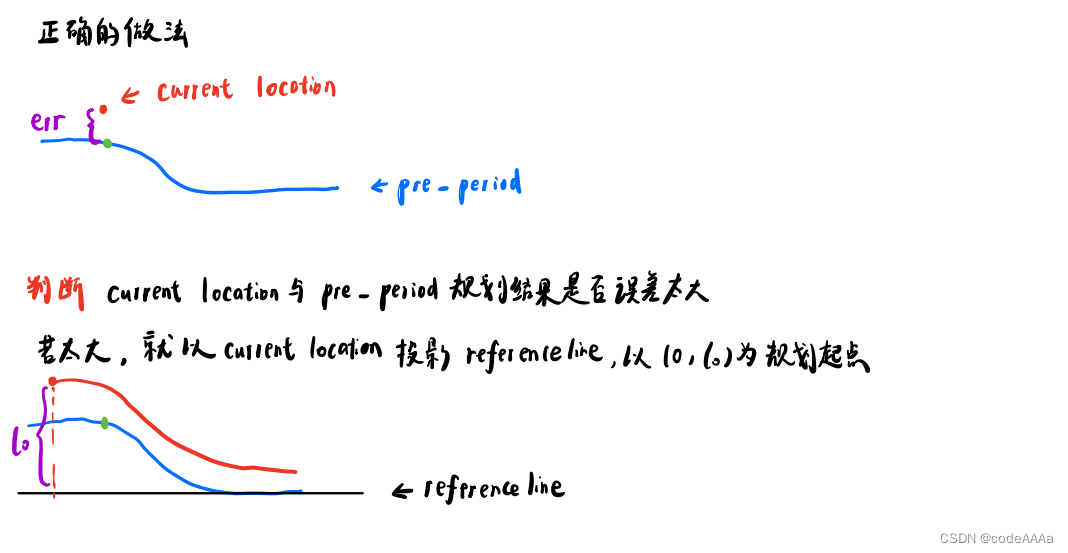 正确的做法
← current location
err
← pre-period
判断 current location 与 pre-period 规划结果是否误差太大
若太大，就以 current location 投影 reference line，以 (0, l₀) 为规划起点
l₀
← reference line
CSDN @codeAAAa